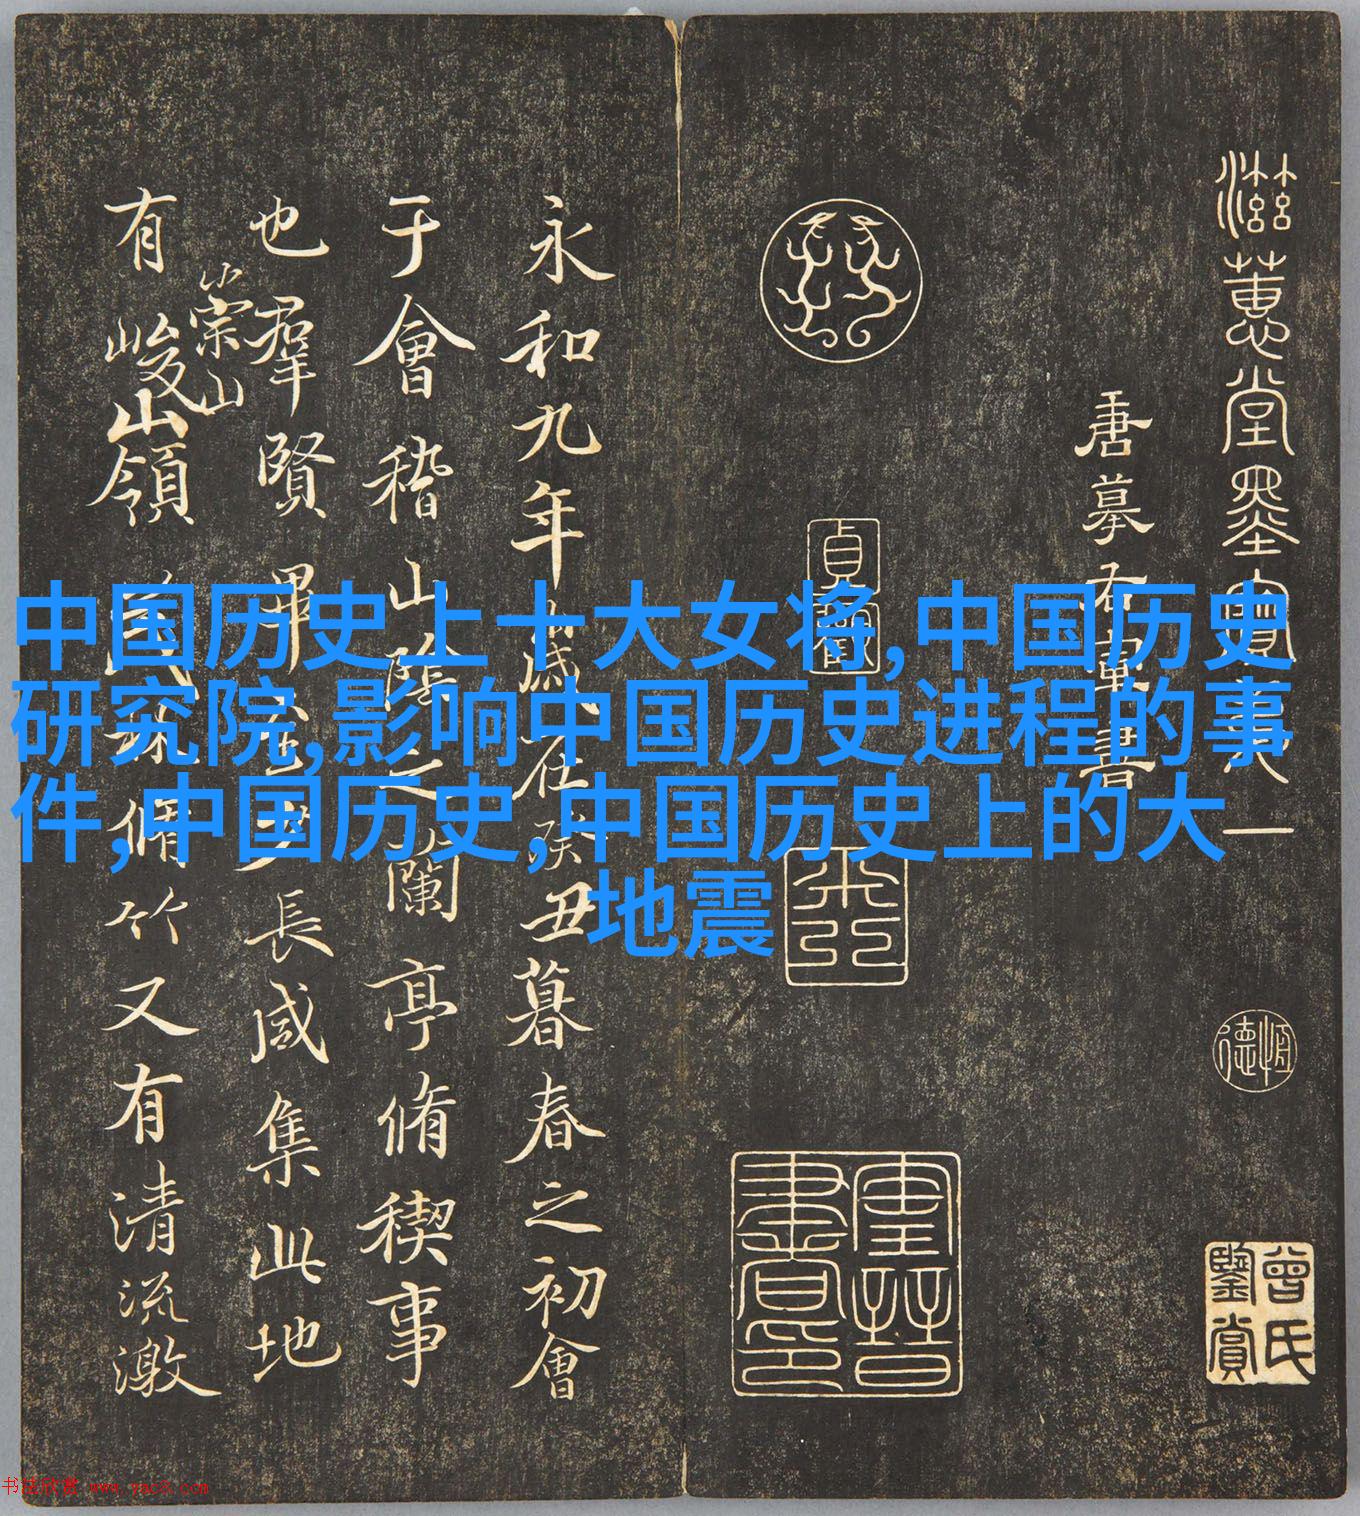 滋蕙堂墨寶卷一
唐摹右軍書
貞觀
恒德
曾氏鑒賞
永和九年歲在癸丑暮春之初會
于會稽山陰之蘭亭脩稧事
也羣賢畢至少長咸集此地
有崇山峻山領茂林脩竹又有清流激
中国历史上十大女将,中国历史
研究院,影响中国历史进程的事
件,中国历史,中国历史上的大
地震
书法欣赏 www.yac8.com